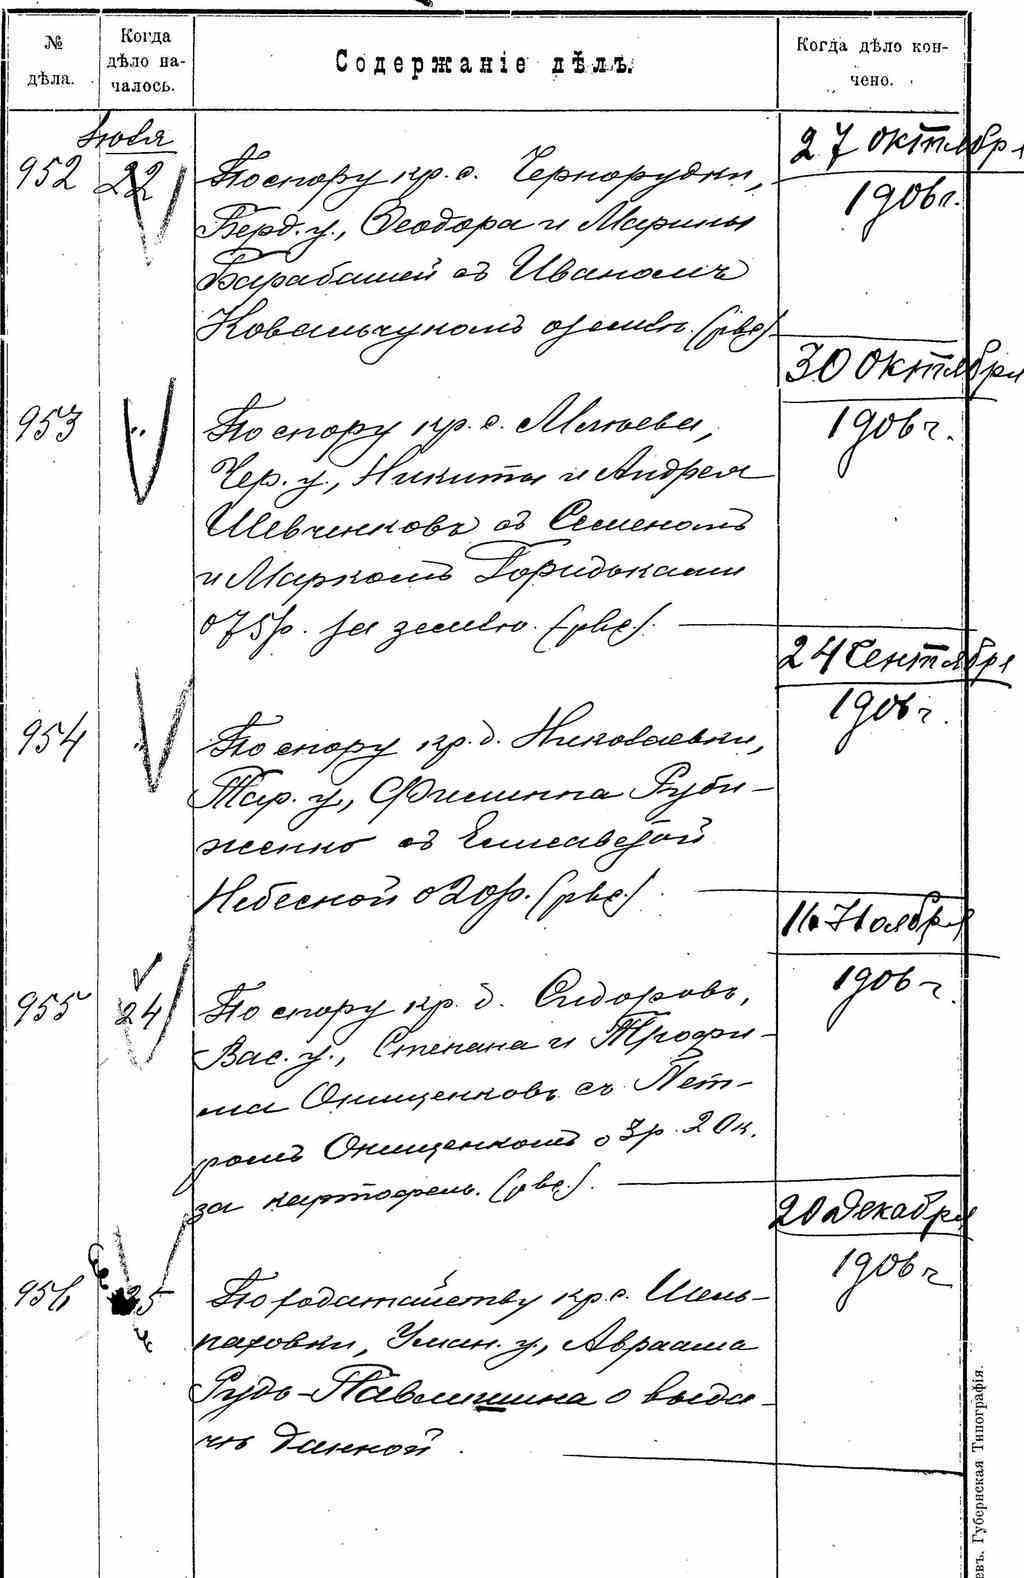 № дѣла.
Когда дѣло на-
чалось.
Содержаніе дѣлъ.
Когда дѣло кон-
чено.
Іюля
952
22
По спору кр. с. Чернорудки,
Берд. у., Ѳеодора и Марины
Барабашей съ Иваномъ
Ковальчукомъ о землѣ. (рвс)
27 Октября
1906 г.
953
"
По спору кр. с. Млѣева,
Чер. у., Никиты и Андрея
Шевченковъ съ Семеномъ
и Маркомъ
о 75 р. за землю. (рвс).
30 Октября
1906 г.
954
"
По спору кр. д. Николаевки,
Тар. у., Филиппа Руби-
женко съ Елисаветой
Небесной о 20 р. (рвс.)
24 Сентября
1906 г.
955
24
По спору кр. д. Сидоровъ,
Вас. у., Степана и Трофи-
ма Онищенковъ съ Пет-
ромъ Онищенкомъ о 3 р. 20 к.
за картофель. (рвс).
16 Ноября
1906 г.
956
25
По ходатайству кр. с. Шель-
паховки, Уман. у., Авраама
Рудь-Павлишина о выда-
чѣ данной.
20 Декабря
1906 г.
евъ. Губернская Типографія.